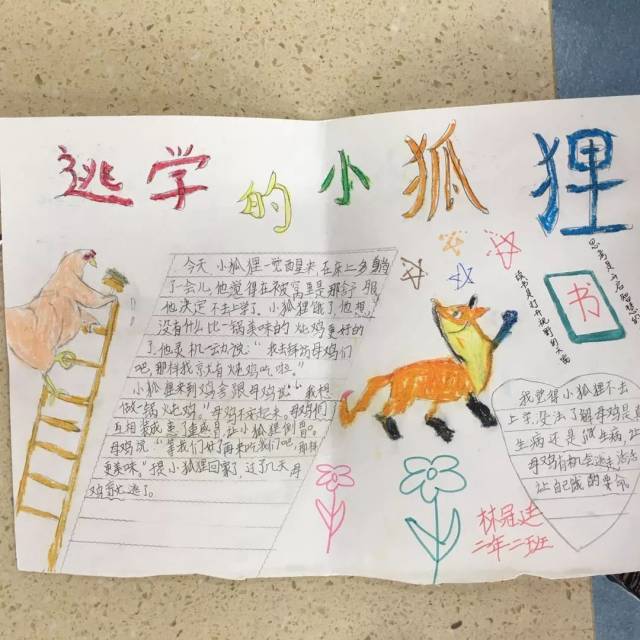 逃学的小狐狸
今天,小狐狸一觉醒来,在床上多躺
了一会儿,他觉得在被窝里是那么舒服
他决定不去上学,小狐狸饿了,他想
没有什么比一锅美味的炖鸡更好的
了,他灵机一动说:"我去拜访母鸡们
吧,那样我就有炖鸡吃啦。"
小狐狸来到鸡舍很
做一锅炖鸡"母鸡们
互相装成
母鸡说"等我们好了再来吃我们吧,那样
更美味"小狐狸回家了,过了几天母
鸡都逃了。
书
读书是打开视野的
我觉得小狐狸不去
上学,没法了解母鸡是真
生病还是假生病,
母鸡有机会逃走
让自己饿的
林冠廷
二年二班